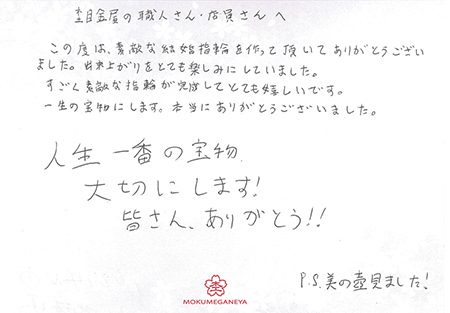 杢目金屋の職人さん・店員さんへ
この度は、素敵な結婚指輪を作って頂いてありがとうござい
ました。出来上がりをとても楽しみにしていました。
すごく素敵な指輪が完成してとても嬉しいです。
一生の宝物にします。本当にありがとうございました。
人生一番の宝物、
大切にします!
皆さん、ありがとう!!
P.S.美の壺見ました!
MOKUMEGANEYA